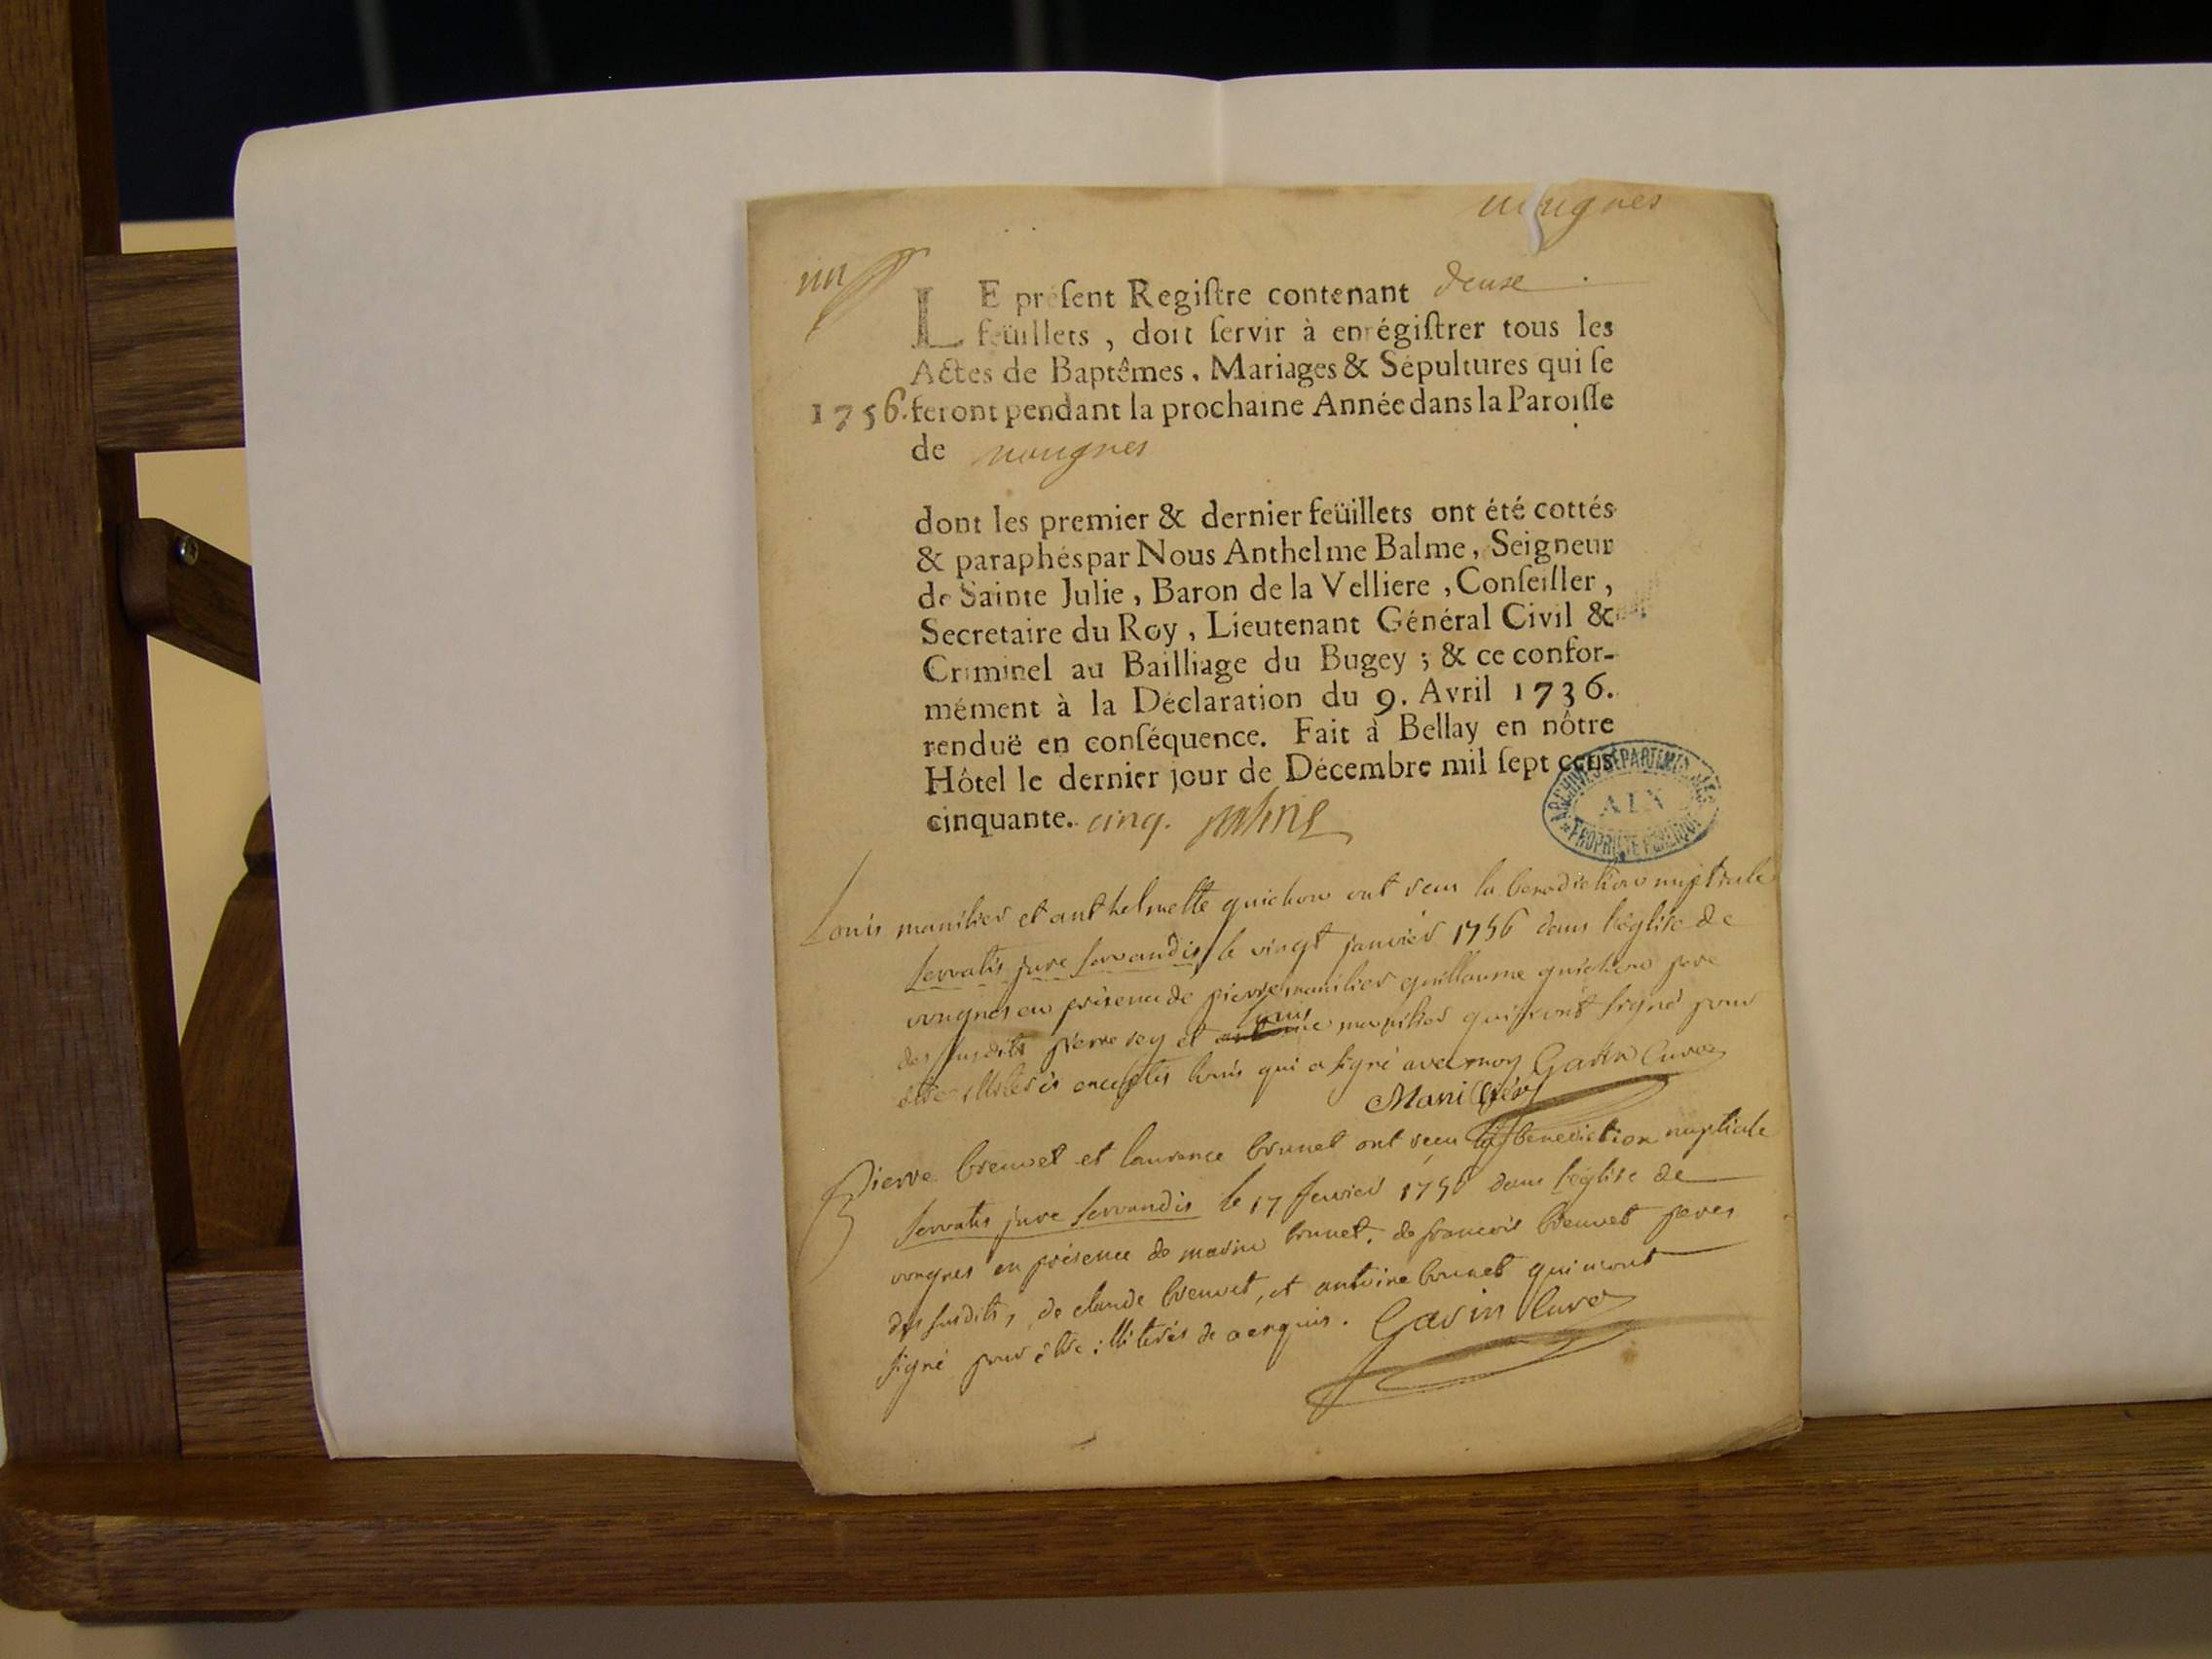 vongnes
LE présent Registre contenant deux
feüillets, doit servir à enrégistrer tous les
Actes de Baptêmes, Mariages & Sépultures qui se
1756. feront pendant la prochaine Année dans la Paroisse
de vongnes
dont les premier & dernier feüillets ont été cottés
& paraphés par Nous Anthelme Balme, Seigneur
de Sainte Julie, Baron de la Velliere, Conseiller,
Secretaire du Roy, Lieutenant Général Civil &
Criminel au Bailliage du Bugey; & ce confor-
mément à la Déclaration du 9. Avril 1736.
renduë en conséquence. Fait à Bellay en nôtre
Hôtel le dernier jour de Décembre mil sept cens
cinquante. cinq.
ARCHIVES DÉPARTEMENTALES
AIN
PROPRIÉTÉ PUBLIQUE
Louis manilier et anthelmette guichon ont recu la benediction nuptiale
servatis jure servandis le vingt janvier 1756 dans l'église de
vongnes en présence de pierre manilier guillaume guichon pere
des susdits pierre rey et louis manilier qui n'ont signé pour
être illiterés exceptés louis qui a signé avec moy Gavin Curé
Manillier
Pierre breuvet et laurence brunet ont recu la benediction nuptiale
servatis jure servandis le 17 fevrier 1756 dans l'église de
vongnes en présence de marin brunet, de francois breuvet peres
des susdits, de claude breuvet, et antoine brunet qui n'ont
signé pour être illiterés de ce enquis. Gavin Curé